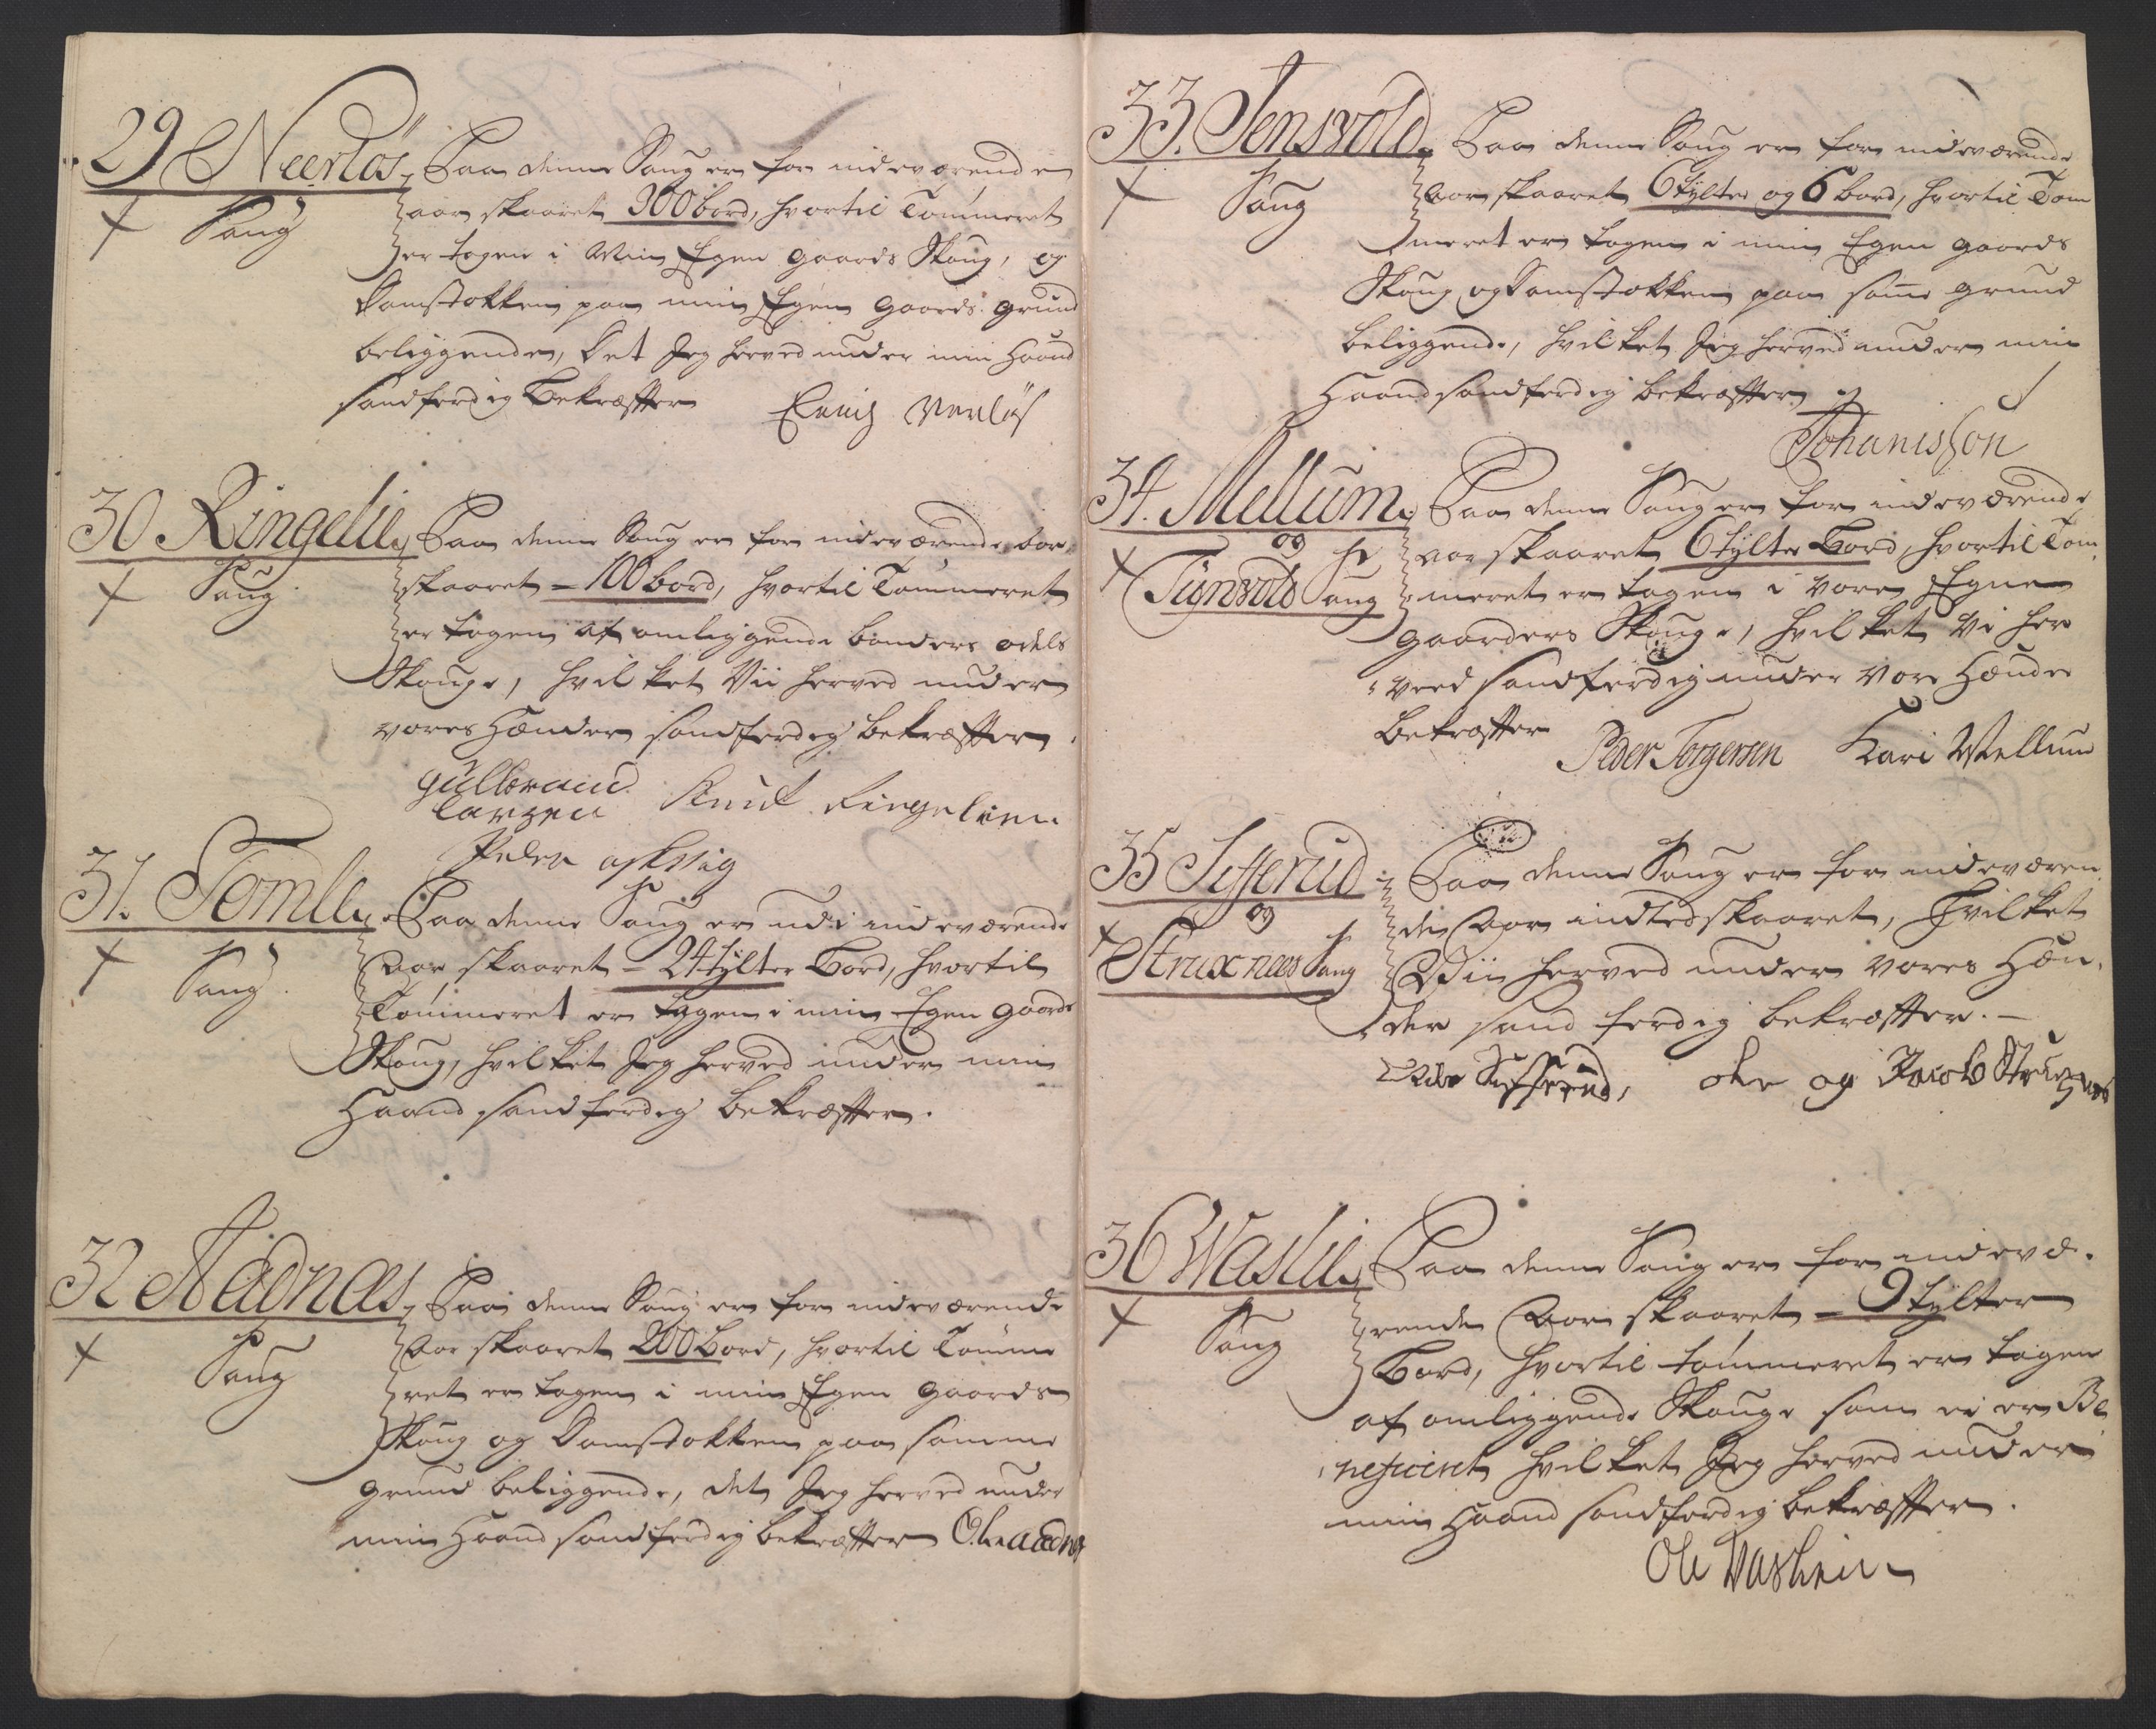 29 Neerløs Paa denne Saug er for indeværende
Saug
aar skaaret 300 bord, hvortil Tømmeret
er tagen i Min Egen gaards Skoug, og
Damstokken paa min Egen Gaards grund
beliggende, Det Jeg herved under min Haand
sandferdig Bekræfter
30 Ringelie Paa denne Saug er for indeværende aar
Saug
skaaret - 100 bord, hvortil Tømmeret
er tagen af omliggende bønders odels
Skouge, hvilket Vii herved under
vores Hænder sandferdig bekræfter.
Gulbrand Knud Ringelien
Larsen
Peder
31. Tomle Paa denne Saug er udi indeværende
Saug
Aar skaaret - 24 tylter Bord, hvortil
Tømmeret er tagen i min Egen gaards
Skoug, hvilket Jeg herved under min
Haand sandferdig bekræfter.
32 Aadnæs Paa denne Saug er for indeværende
Saug
Aar skaaret 200 Bord, hvortil Tømme
ret er tagen i min Egen gaards
Skoug og Damstokken paa samme
grund beliggende, det Jeg herved under
min Haand sandferdig bekræfter Ole Aadnes
33. Jensvold Paa denne Saug er for indeværende
Saug
Aar skaaret 6 tylter og 6 bord, hvortil Tøm
meret er tagen i min Egen gaards
Skoug og Damstokken paa samme grund
beliggende, hvilket Jeg herved under min
Haand sandferdig bekræfter
Johannisson
34. Mellum Paa denne Saug er for indeværende
og
Tignvold Saug
aar skaaret 6 tylter Bord, hvortil Tøm
meret er tagen i vore Egne
gaarders Skouge, hvilket Vi her
ved sandferdig under vore Hænder
Bekræfter Peder Torgersen Kari Mellum
35 Sifferud Paa denne Saug er for indeværen
og
Struxnæs Saug
de Aar indted skaaret, Hvilket
Vii herved under vores Hæn
der sandferdig bekræfter. -
Sifferud, Ole og Jacob Struxnæs
36 Waslie Paa denne Saug er for indevæ
Saug
rende Aar skaaret - 9 tylter
Bord, hvortil tømmeret er tagen
af omliggende Skouge som ei er Be
neficeret hvilket Jeg herved under
min Haand sandferdig bekræfter.
Ole Waslien